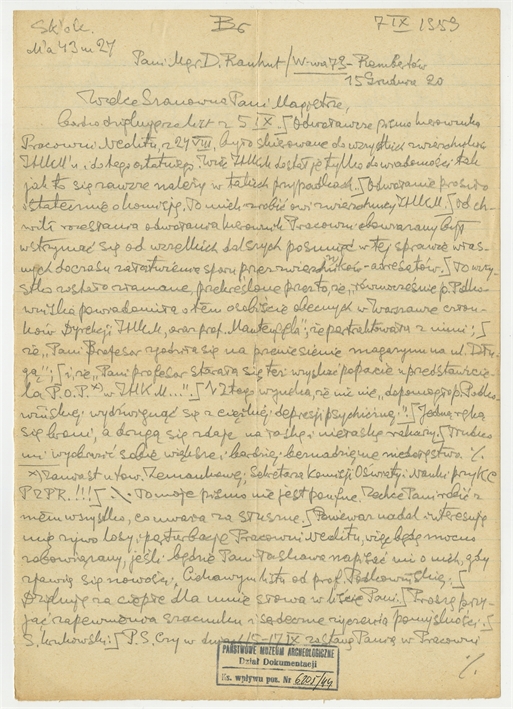 Sk'ole. B6 7 IX 1959
M'a 43 m 27
Pani Mgr. D. Rauhut / W-wa 73 - Rembertów
15 Grudnia 20
Wielce Szanowna Pani Magistrze,
bardzo dziękuję za list z 5 IX. Odwoławcze pismo kierownika
Pracowni Neolitu, z 27 VIII, było skierowane do wszystkich zwierzchników
IHKM'u i do kogo ostatniego. Więc IHKM dostał je tylko do wiadomości tak
jak to się zawsze należy w takich przypadkach. Odwołanie prosiło
ostatecznie o komisję. To mieli zrobić owi zwierzchnicy IHKM. Od ch-
wili odwołania kierownik Pracowni obowiązany był
wstrzymać się od wszelkich dalszych posunięć w tej sprawie włas-
nych do czasu załatwienia sporu przez zwierzchników - adresatów. To wszy-
stko zostało złamane, przekreślone przez to, że, równocześnie p. Podko-
wińska powiadomiła o tem osobiście obecnych w Warszawie człon-
ków Dyrekcji IHKM, oraz prof. Manteuffel'a, że pertraktowała z nimi;
że, "Pani Profesor zgodziła się na przeniesienie magazynu na ul. Dłu-
gą"; i że, "Pani profesor starała się też uzyskać poparcie u przedstawicie-
la P.O.P. x) w IHKM...". Z tego wynika, że nic nie "dopomogło p. Podko-
wińskiej wydźwignąć się z ciężkiej depresji psychicznej". Jedną ręką
się broni, a drugą się zdaje na łaskę i niełaskę . Trudno
mi wyobrazić sobie większe i bardziej beznadziejne niedołęstwo. ./.
x) Zamiast u tow. Zemankowej, Sekretarza Komisji Oświaty i Nauki przy KC
PZPR.!!! To moje pismo nie jest poufne. Zechce Pani robić z
niem wszystko, co uważa za słuszne. Ponieważ nadal interesują
mię żywo losy i perturbacje Pracowni Neolitu, więc będę mocno
zobowiązany, jeśli będzie Pani łaskawa napisać mi o nich, gdy
zjawią się nowości. Ciekawym listu od prof. Podkowińskiej.
Dziękuję za ciepłe dla mnie słowa w liście Pani. Proszę przy-
jąć zapewnienia szacunku i serdeczne życzenia pomyślności.
S. Krukowski. P.S. Czy w dniach 15-17 IX zastanę Panią w Pracowni
./.
PAŃSTWOWE MUZEUM ARCHEOLOGICZNE
Dział Dokumentacji
Ks. wpływu poz. Nr 6005/44